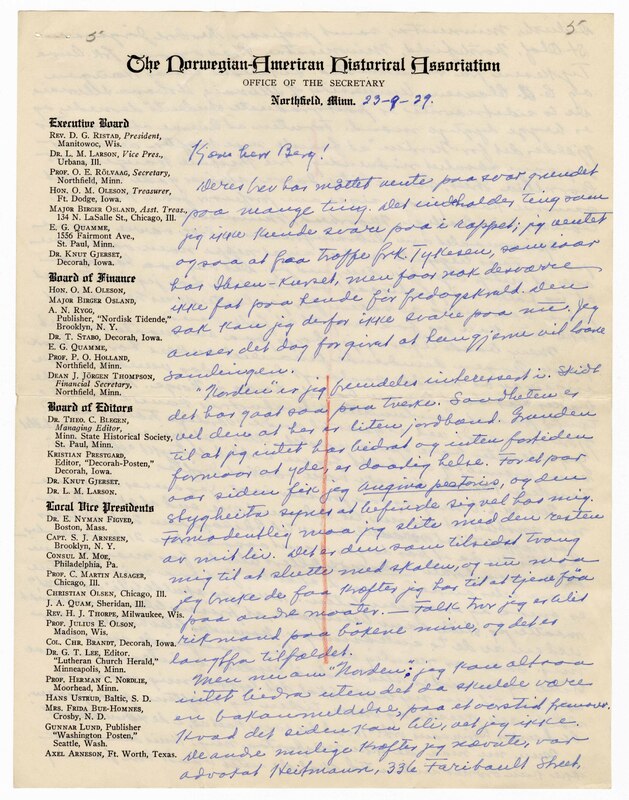 5
5
The Norwegian-American Historical Association
OFFICE OF THE SECRETARY
Northfield, Minn. 23-9-29.
Executive Board
REV. D. G. RISTAD, President,
Manitowoc, Wis.
DR. L. M. LARSON, Vice Pres.,
Urbana, Ill.
PROF. O. E. RÖLVAAG, Secretary,
Northfield, Minn.
HON. O. M. OLESON, Treasurer,
Ft. Dodge, Iowa.
MAJOR BIRGER OSLAND, Asst. Treas.,
134 N. LaSalle St., Chicago, Ill.
E. G. QUAMME,
1556 Fairmont Ave.,
St. Paul, Minn.
DR. KNUT GJERSET,
Decorah, Iowa.
Board of Finance
HON. O. M. OLESON,
MAJOR BIRGER OSLAND,
A. N. RYGG,
Publisher, "Nordisk Tidende,"
Brooklyn, N. Y.
DR. T. STABO, Decorah, Iowa.
E. G. QUAMME,
PROF. P. O. HOLLAND,
Northfield, Minn.
DEAN J. JÖRGEN THOMPSON,
Financial Secretary,
Northfield, Minn.
Board of Editors
DR. THEO. C. BLEGEN,
Managing Editor,
Minn. State Historical Society,
St. Paul, Minn.
KRISTIAN PRESTGARD,
Editor, "Decorah-Posten,"
Decorah, Iowa.
DR. KNUT GJERSET,
DR. L. M. LARSON.
Local Vice Presidents
DR. E. NYMAN FIGVED,
Boston, Mass.
CAPT. S. J. ARNESEN,
Brooklyn, N. Y.
CONSUL M. MOE,
Philadelphia, Pa.
PROF. C. MARTIN ALSAGER,
Chicago, Ill.
CHRISTIAN OLSEN, Chicago, Ill.
J. A. QUAM, Sheridan, Ill.
REV. H. J. THORPE, Milwaukee, Wis.
PROF. JULIUS E. OLSON,
Madison, Wis.
COL. CHR. BRANDT, Decorah, Iowa.
DR. G. T. LEE, Editor,
"Lutheran Church Herald,"
Minneapolis, Minn.
PROF. HERMAN C. NORDLIE,
Moorhead, Minn.
HANS USTRUD, Baltic, S. D.
MRS. FRIDA BUE-HOMNES,
Crosby, N. D.
GUNNAR LUND, Publisher
"Washington Posten,"
Seattle, Wash.
AXEL ARNESON, Ft. Worth, Texas.
Kjære herr Berg!
Deres brev har måttet vente paa svar grundet
paa mange ting. Det indholder ting som
jeg ikke kunde svare paa i rappet; jeg ventet
ogsaa at faa træffe frk. Tykesen, som iaar
har Ibsen-Kurset, men faar nok desværre
ikke fat paa hende för fredagskveld. Den
sak kan jeg derfor ikke svare paa nu. Jeg
anser det dog for givet at han gjerne vil laane
samlingen.
"Norden" er jeg fremdeles interessert i. Skidt
det har gaat saa paa tverke. Sandheten er
vel den at her er liten jordband. Grunden
til at jeg intet har bedrat og intet fortiden
formaar at yde, er daarlig helse. For et par
aar siden fik jeg angina pestoris, og den
stygheita synes at befinde sig vel hos mig.
Formodentlig maa jeg slite med den resten
av mit liv. Det er den som tilsidst tvang
mig til at slutte med skolen, og nu maa
jeg bruke de faa kræfter jeg har til at tjene föa
paa andre maater. — Folk tror jeg er blit
rikmand paa bökene mine, og det er
langtfra tilfældet.
Men nu om "Norden": jeg kan altsaa
intet bedra uten det da skulde være
en bokanmeldelse, paa et varstid fremover.
Hvad det siden kan bli, vet jeg ikke.
De andre mulige kræfter jeg nævnte, var
advokat Heitmann, 336 Faribault Street,